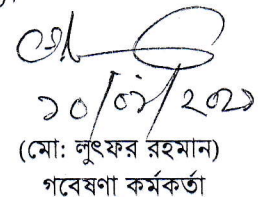 ১০/০২/২০২১
(মো: লুৎফর রহমান)
গবেষণা কর্মকর্তা